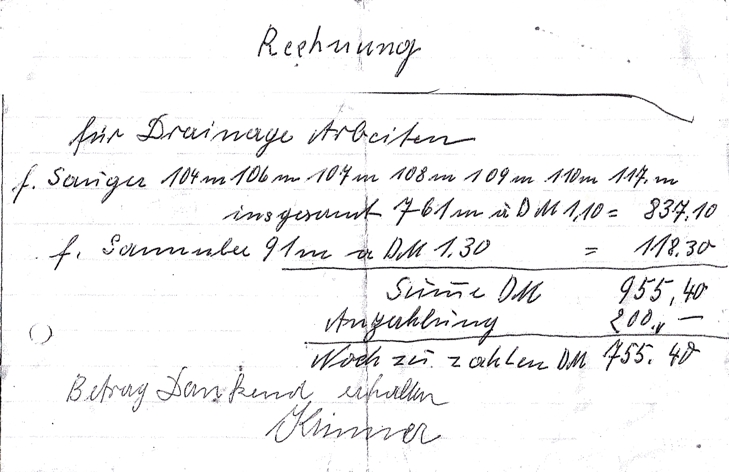 Rechnung
für Drainage Arbeiten
f. Sauger 104 m 106 m 107 m 108 m 109 m 110 m 117. m
insgesamt 761 m à DM 1,10 = 837.10
f. Sammler 91 m a DM 1.30 = 118.30
Summe DM 955,40
Anzahlung 200.,—
Noch zu zahlen DM 755.40
Betrag Dankend erhalten